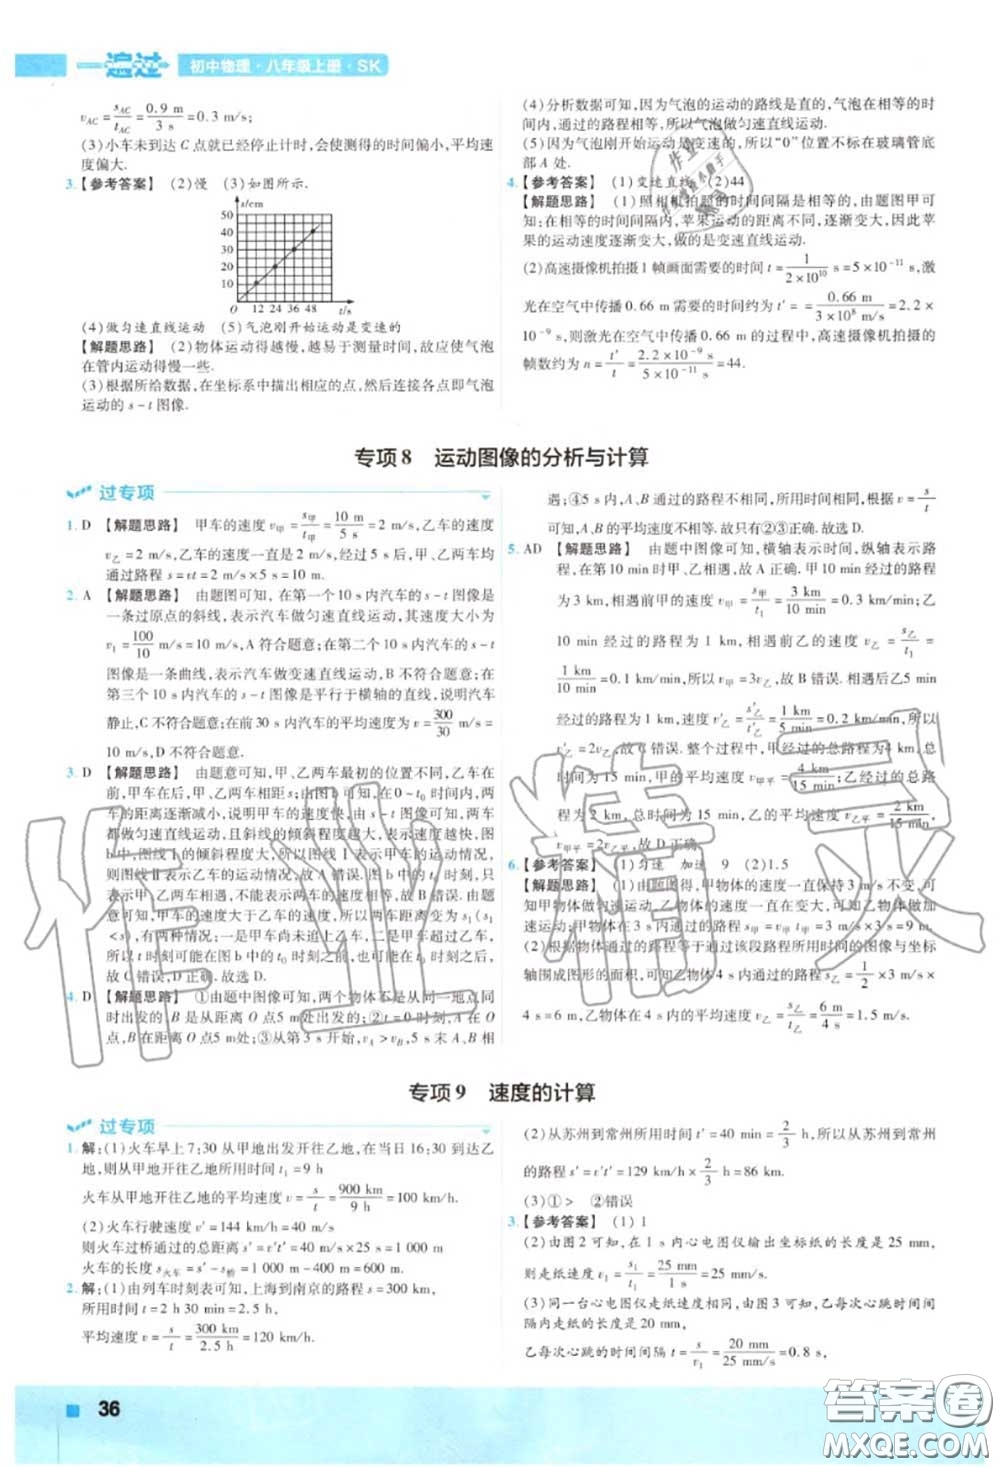 一遍过 初中物理·八年级上册·SK
v_AC = s_AC/t_AC = 0.9 m/3 s = 0.3 m/s;
(3)小车未到达 C 点就已经停止计时,会使测得的时间偏小,平均速
度偏大.
3. 【参考答案】 (2)慢 (3)如图所示.
s/cm
50
40
30
20
10
0 12 24 36 48 t/s
(4)做匀速直线运动 (5)气泡刚开始运动是变速的
【解题思路】 (2)物体运动得越慢,越易于测量时间,故应使气泡
在管内运动得慢一些.
(3)根据所给数据,在坐标系中描出相应的点,然后连接各点即气泡
运动的 s-t 图像.
(4)分析数据可知,因为气泡的运动的路线是直的,气泡在相等的时
间内,通过的路程相等,所以气泡做匀速直线运动.
(5)因为气泡刚开始运动是变速的,所以“0”位置不标在玻璃管底
部 A 处.
4. 【参考答案】 (1)变速直线 (2)44
【解题思路】 (1)照相机拍照的时间间隔是相等的,由题图甲可
知:在相等的时间间隔内,苹果运动的距离不同,逐渐变大,因此苹
果的运动速度逐渐变大,做的是变速直线运动.
(2)高速摄像机拍摄 1 帧画面需要的时间 t = 1/(2×10¹⁰) s = 5×10⁻¹¹ s,激
光在空气中传播 0.66 m 需要的时间约为 t′ = 0.66 m/(3×10⁸ m/s) = 2.2×
10⁻⁹ s,则激光在空气中传播 0.66 m 的过程中,高速摄像机拍摄的
帧数约为 n = t′/t = (2.2×10⁻⁹ s)/(5×10⁻¹¹ s) = 44.
专项8 运动图像的分析与计算
过专项
1. D 【解题思路】 甲车的速度 v甲 = s甲/t甲 = 10 m/5 s = 2 m/s,乙车的速度
v乙 = 2 m/s,乙车的速度一直是 2 m/s,经过 5 s 后,甲、乙两车均
通过路程 s = vt = 2 m/s×5 s = 10 m.
2. A 【解题思路】 由题图可知,在第一个 10 s 内汽车的 s-t 图像是
一条过原点的斜线,表示汽车做匀速直线运动,其速度大小为
v₁ = 100/10 m/s = 10 m/s,A 符合题意;在第二个 10 s 内汽车的 s-t
图像是一条曲线,表示汽车做变速直线运动,B 不符合题意;在
第三个 10 s 内汽车的 s-t 图像是平行于横轴的直线,说明汽车
静止,C 不符合题意;在前 30 s 内汽车的平均速度为 v = 300/30 m/s =
10 m/s,D 不符合题意.
3. D 【解题思路】 由题意可知,甲、乙两车最初的位置不同,乙车在
前,甲车在后,甲、乙两车同时出发;由图 b 可知,在 0~t₀ 时刻,两
车的路程差逐渐减小,说明甲车的速度快,由 s-t 图像可知,两车
都做匀速直线运动,且斜线的倾斜程度越大,表示速度越快.图
b 中,图线Ⅰ的倾斜程度大,所以图线Ⅰ表示甲车的运动情况,
图线Ⅱ表示乙车的运动情况,故 A 错误.图 b 中的 t₀ 时刻,只
表示甲、乙两车相遇,不能表示两车速度相等,故 B 错误.因为
甲车的速度大于乙车的速度,所以两车相距的路程为 s₁(s₁
<s)时,有两种情况:一是甲车尚未追上乙车,二是甲车超过乙车,
所以可能在图 b 中的 t₀ 时刻之前,也可能在图 b 中的 t₀ 时刻之后,
故 C 错误,D 正确.故选 D.
4. D 【解题思路】 ①由题中图像可知,两个物体不是从同一地点同
时出发的,B 是从距离 O 点5 m处出发的;②0时刻,A 在 O
点,B 在距离 O 点5 m处;③从第 3 s 开始,v_A > v_B,5 s 末 A、B 相
遇;④5 s 内,A、B 通过的路程不相同,所用时间相同,根据 v = s/t
可知,A、B 的平均速度不相等.故只有②③正确.故选 D.
5. AD 【解题思路】 由题中图像可知,横轴表示时间,纵轴表示路
程,在第 10 min 时甲、乙相遇,故 A 正确.甲 10 min 经过的路程
为 3 km,相遇前甲的速度 v甲 = s甲/t₁ = 3 km/10 min = 0.3 km/min;乙
10 min 经过的路程为 1 km,相遇前乙的速度 v乙 = s乙/t₁ =
1 km/10 min = 0.1 km/min,所以 v甲 = 3v乙,故 B 错误.相遇后乙5 min
经过的路程为 1 km,乙的速度 v′乙 = s′乙/t′乙 = 1 km/5 min = 0.2 km/min,所以
v′乙 = 2v乙,故 C 错误.整个过程中,甲经过的总路程为4 km,总
时间为 15 min,甲的平均速度 v甲平 = 4 km/15 min;乙经过的总路程
为 2 km,总时间为 15 min,乙的平均速度 v乙平 = 2 km/15 min,
v甲平 = 2v乙平,故 D 正确.
6. 【参考答案】 (1)匀速 加速 9 (2)1.5
【解题思路】 (1)由题图得,甲物体的速度一直保持 3 m/s 不变,可
知甲物体做匀速运动,乙物体的速度一直在变大,可知乙物体做加
速运动;甲物体在 3 s 内运动的距离为 s甲 = v甲t = 3 m/s×3 s = 9 m.
(2)根据物体通过的路程等于通过该段路程所用时间的图像与坐标
轴围成图形的面积,可知乙物体 4 s 内通过的路程 s乙 = 1/2×3 m/s×
4 s = 6 m,乙物体在 4 s 内的平均速度 v乙 = s乙/t乙 = 6 m/4 s = 1.5 m/s.
专项9 速度的计算
过专项
1. 解:(1)火车早上 7:30 从甲地出发开往乙地,在当日 16:30 到达乙
地,则火车从甲地开往乙地所用时间 t₁ = 9 h
火车从甲地开往乙地的平均速度 v = s/t = 900 km/9 h = 100 km/h.
(2)火车行驶速度 v′ = 144 km/h = 40 m/s
则火车过桥通过的总距离 s′ = v′t′ = 40 m/s×25 s = 1 000 m
火车的长度 s火车 = s′ - s桥 = 1 000 m - 400 m = 600 m.
2. 解:(1)由列车时刻表可知,上海到南京的路程 s = 300 km,
所用时间 t = 2 h 30 min = 2.5 h,
平均速度 v = s/t = 300 km/2.5 h = 120 km/h.
(2)从苏州到常州所用时间 t′ = 40 min = 2/3 h,从苏州到常州
的路程 s′ = v′t′ = 129 km/h×2/3 h = 86 km.
(3)①> ②错误
3. 【参考答案】 (1)1
(2)由图 2 可知,在 1 s 内心电图仪输出坐标纸的长度是 25 mm,
则走纸速度 v₁ = s₁/t₁ = 25 mm/1 s = 25 mm/s
(3)同一台心电图仪走纸速度相同,由图 3 可知,乙每次心跳时间
间隔内走纸的长度是 20 mm,
乙每次心跳的时间间隔 t = s/v₁ = 20 mm/25 mm/s = 0.8 s,
36
作业精灵
答案圈
MXQE.COM